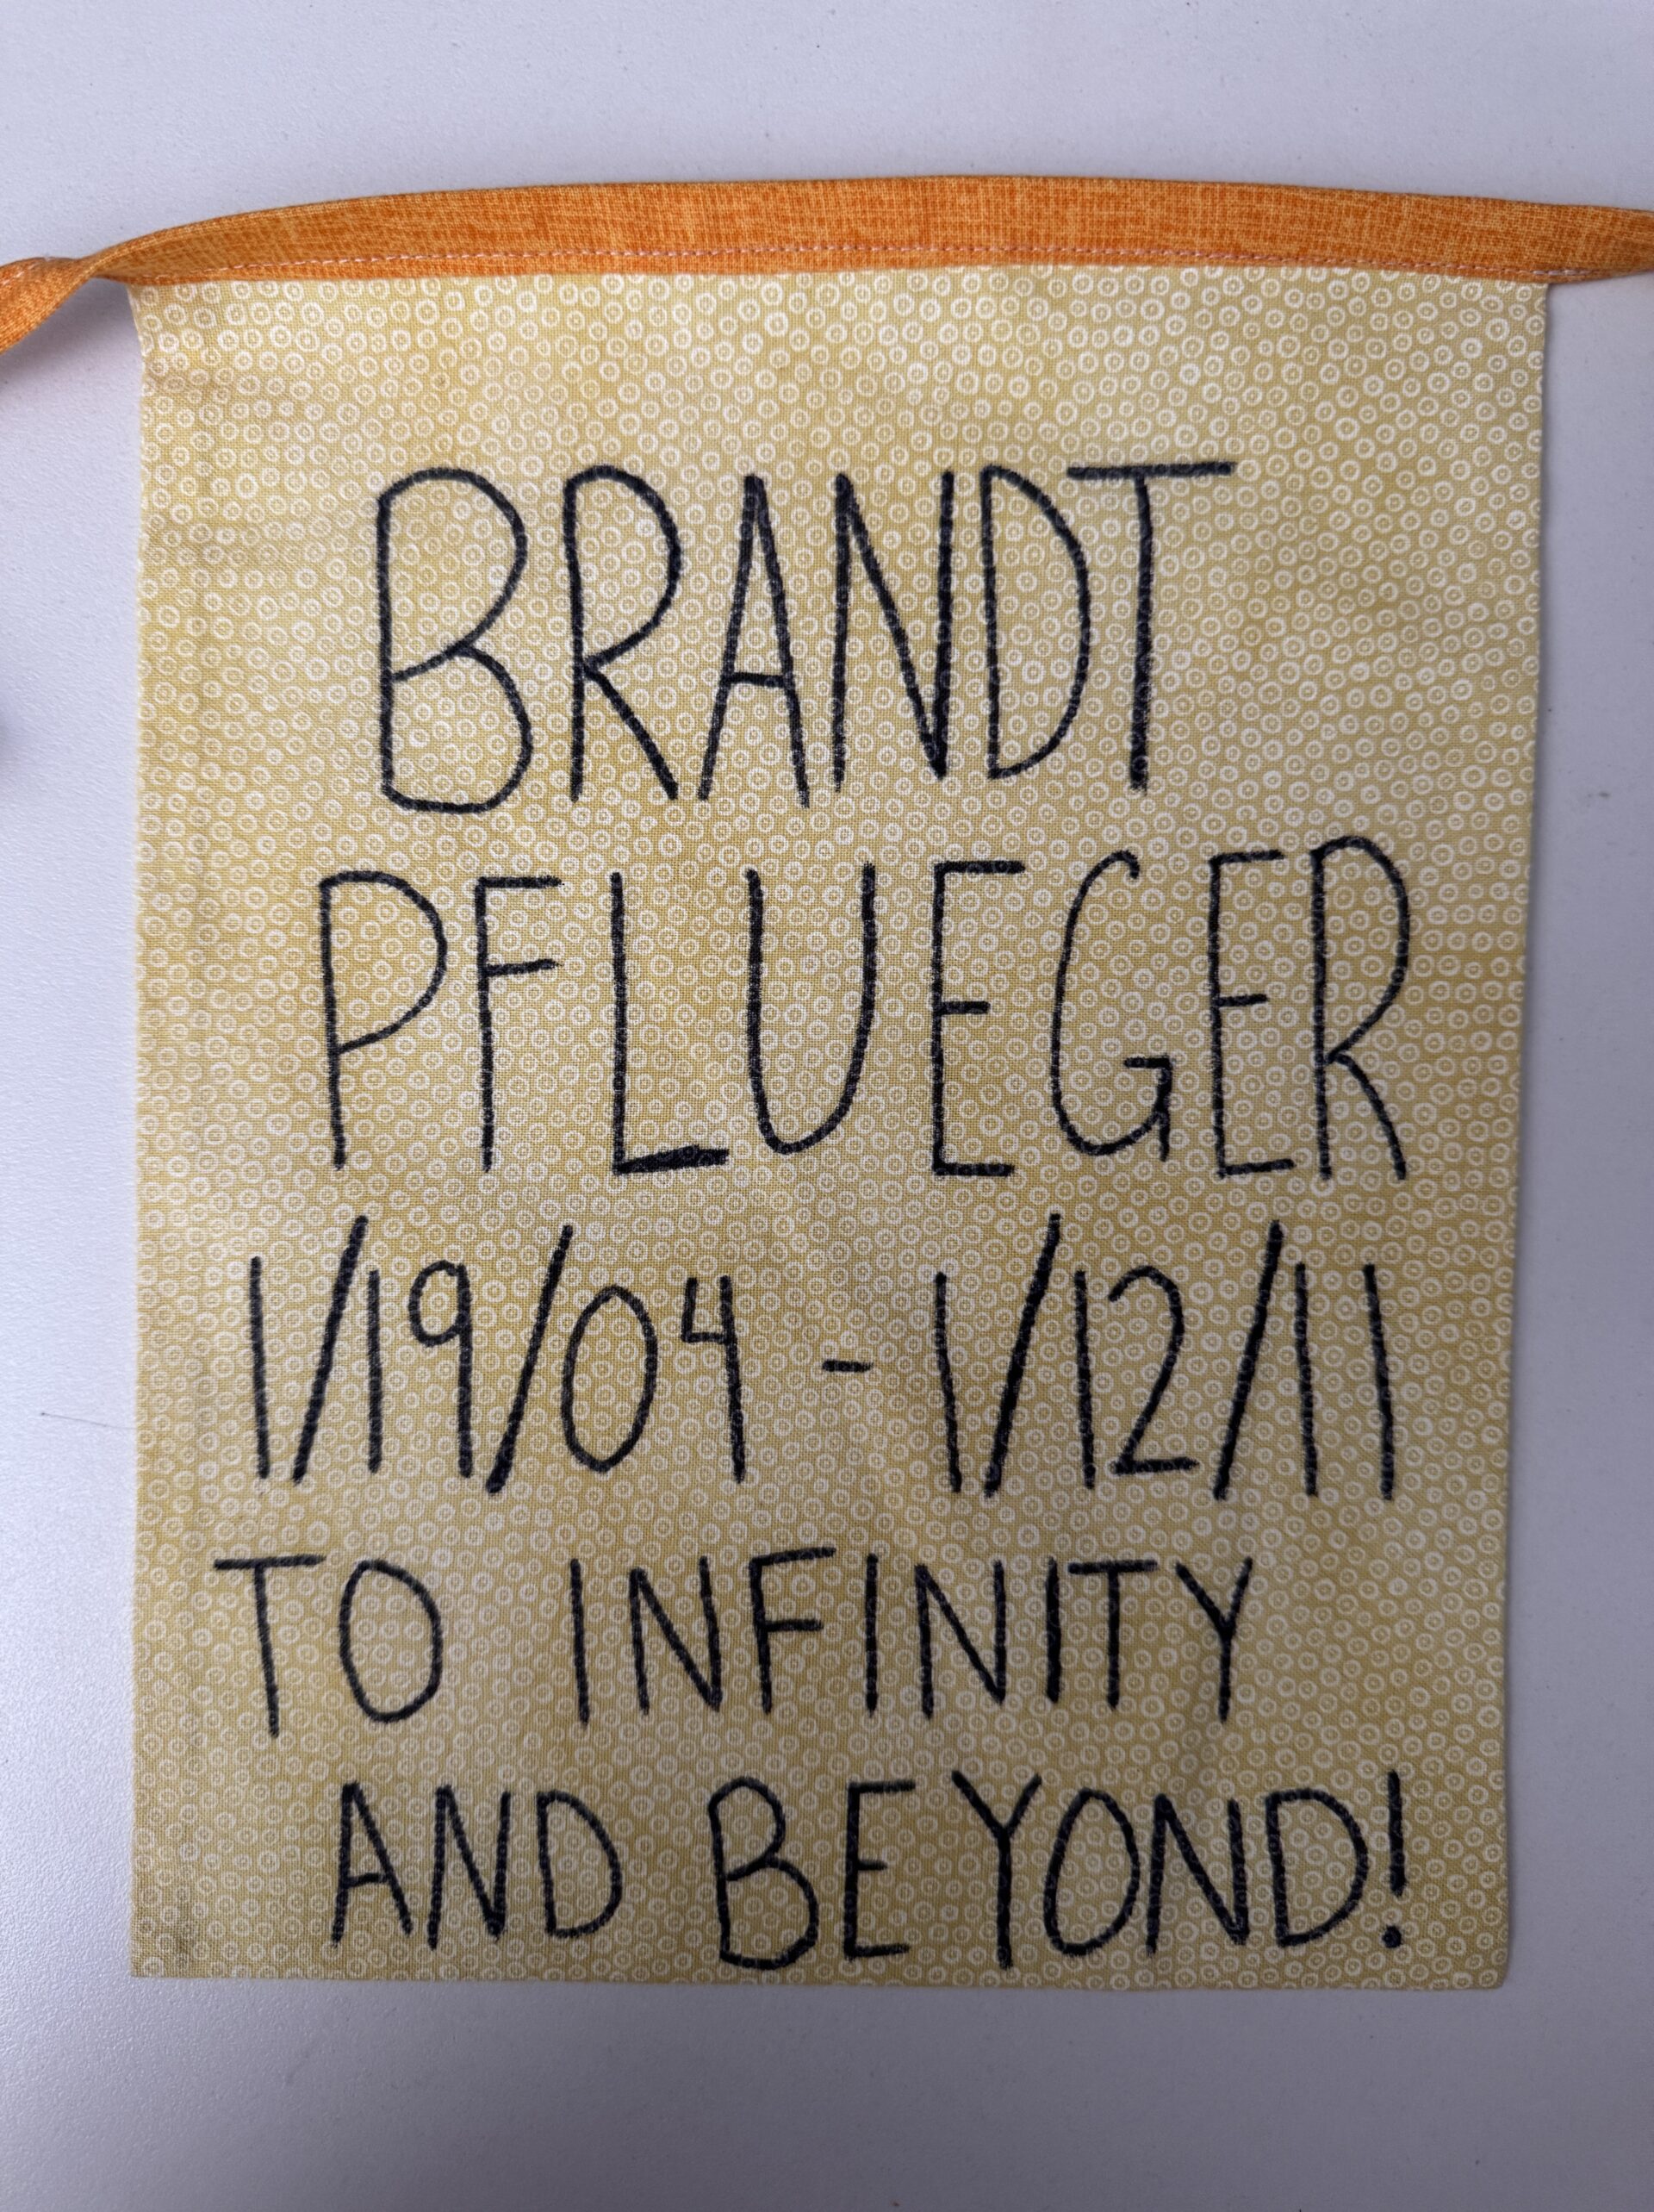 BRANDT
PFLUEGER
1/19/04 - 1/12/11
TO INFINITY
AND BEYOND!